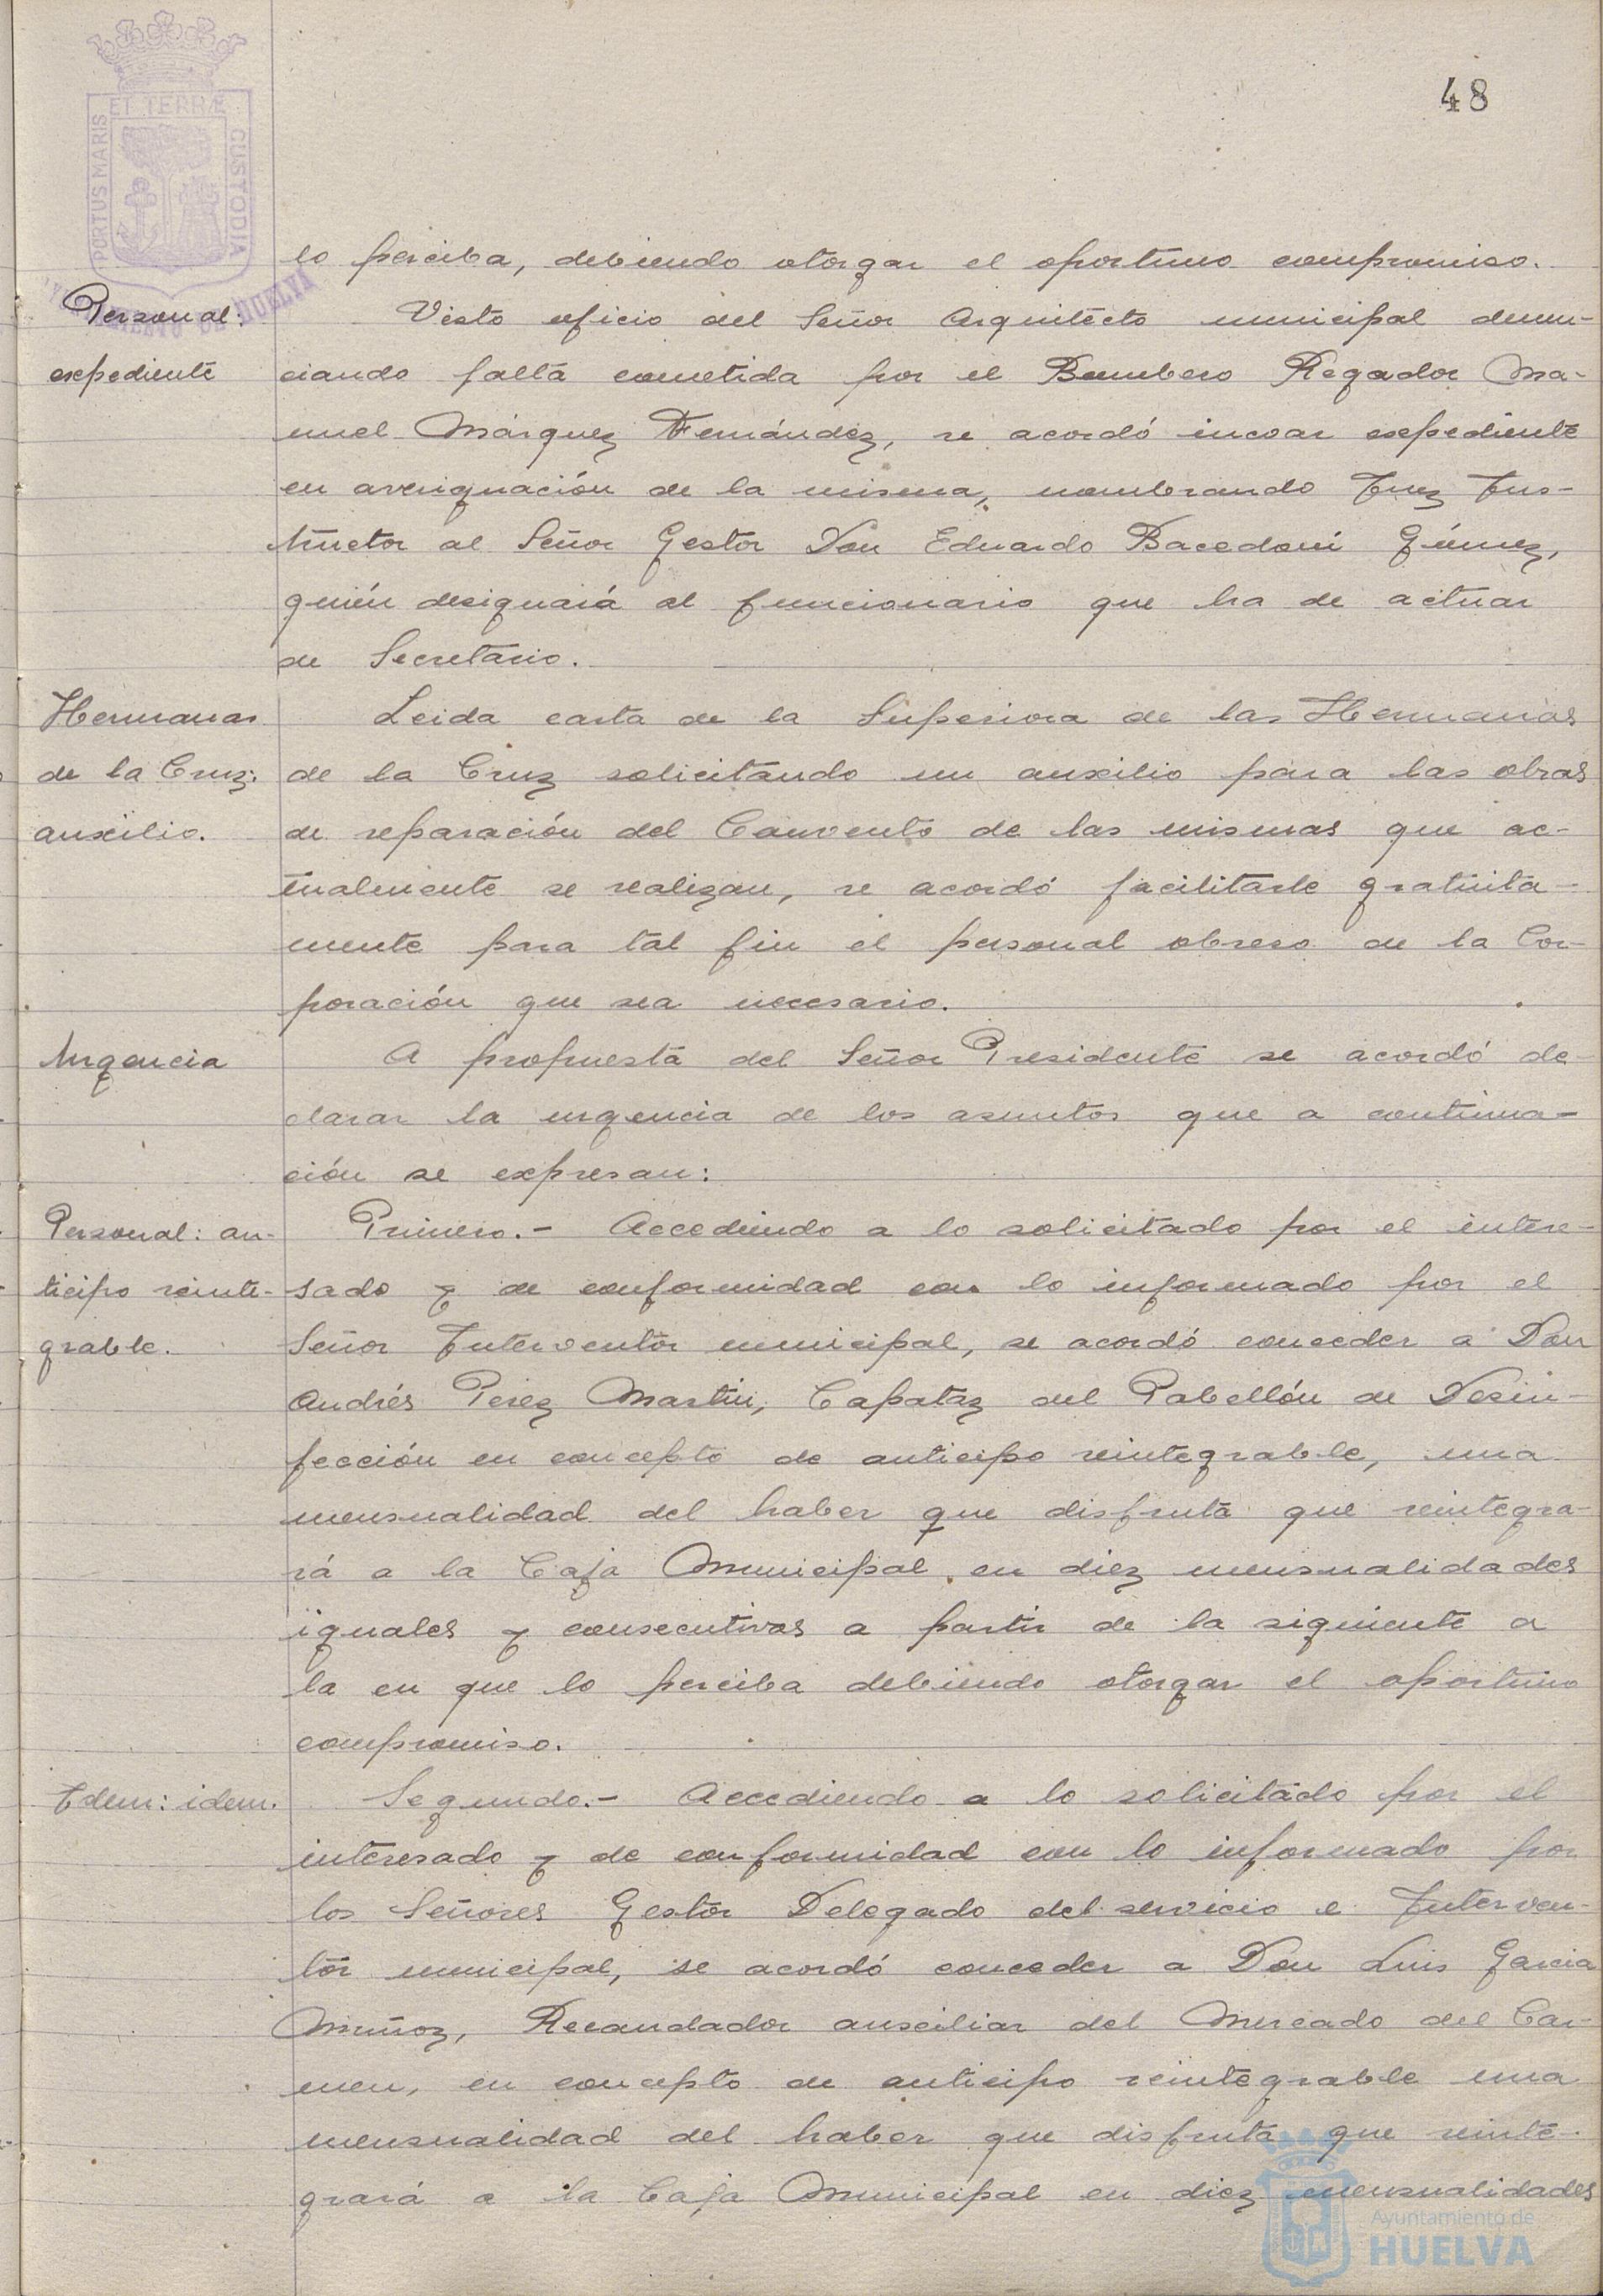 48
PORTUS MARIS ET TERRÆ CUSTODIA
HUELVA
lo perciba, debiendo otorgar el oportuno compromiso.
Personal:
expediente
Visto oficio del Señor Arquitecto municipal denun-
ciando falta cometida por el Bombero Regador Ma-
nuel Márquez Fernández, se acordó incoar expediente
en averiguación de la misma, nombrando Juez Ins-
tructor al Señor Gestor Don Eduardo Bacedoni Gómez,
quién designará al funcionario que ha de actuar
de Secretario.
Hermanas
de la Cruz:
auxilio.
Leida carta de la Superiora de las Hermanas
de la Cruz solicitando un auxilio para las obras
de reparación del Convento de las mismas que ac-
tualmente se realizan, se acordó facilitarle gratuita-
mente para tal fin el personal obrero de la Cor-
poración que sea necesario.
Urgencia
A propuesta del Señor Presidente se acordó de-
clarar la urgencia de los asuntos que a continua-
ción se expresan:
Personal: an-
ticipo reinte-
grable.
Primero.- Accediendo a lo solicitado por el intere-
sado y de conformidad con lo informado por el
Señor Interventor municipal, se acordó conceder a Don
Andrés Perez Martin, Capataz del Pabellón de Desin-
fección en concepto de anticipo reintegrable, una
mensualidad del haber que disfruta que reintegra-
rá a la Caja Municipal en diez mensualidades
iguales y consecutivas a partir de la siguiente a
la en que lo perciba debiendo otorgar el oportuno
compromiso.
Idem: idem.
Segundo.- Accediendo a lo solicitado por el
interesado y de conformidad con lo informado por
los Señores Gestor Delegado del servicio e Interven-
tor municipal, se acordó conceder a Don Luis Garcia
Muñoz, Recaudador auxiliar del Mercado del Car-
men, en concepto de anticipo reintegrable una
mensualidad del haber que disfruta que reinte-
grará a la Caja Municipal en diez mensualidades
Ayuntamiento de
HUELVA